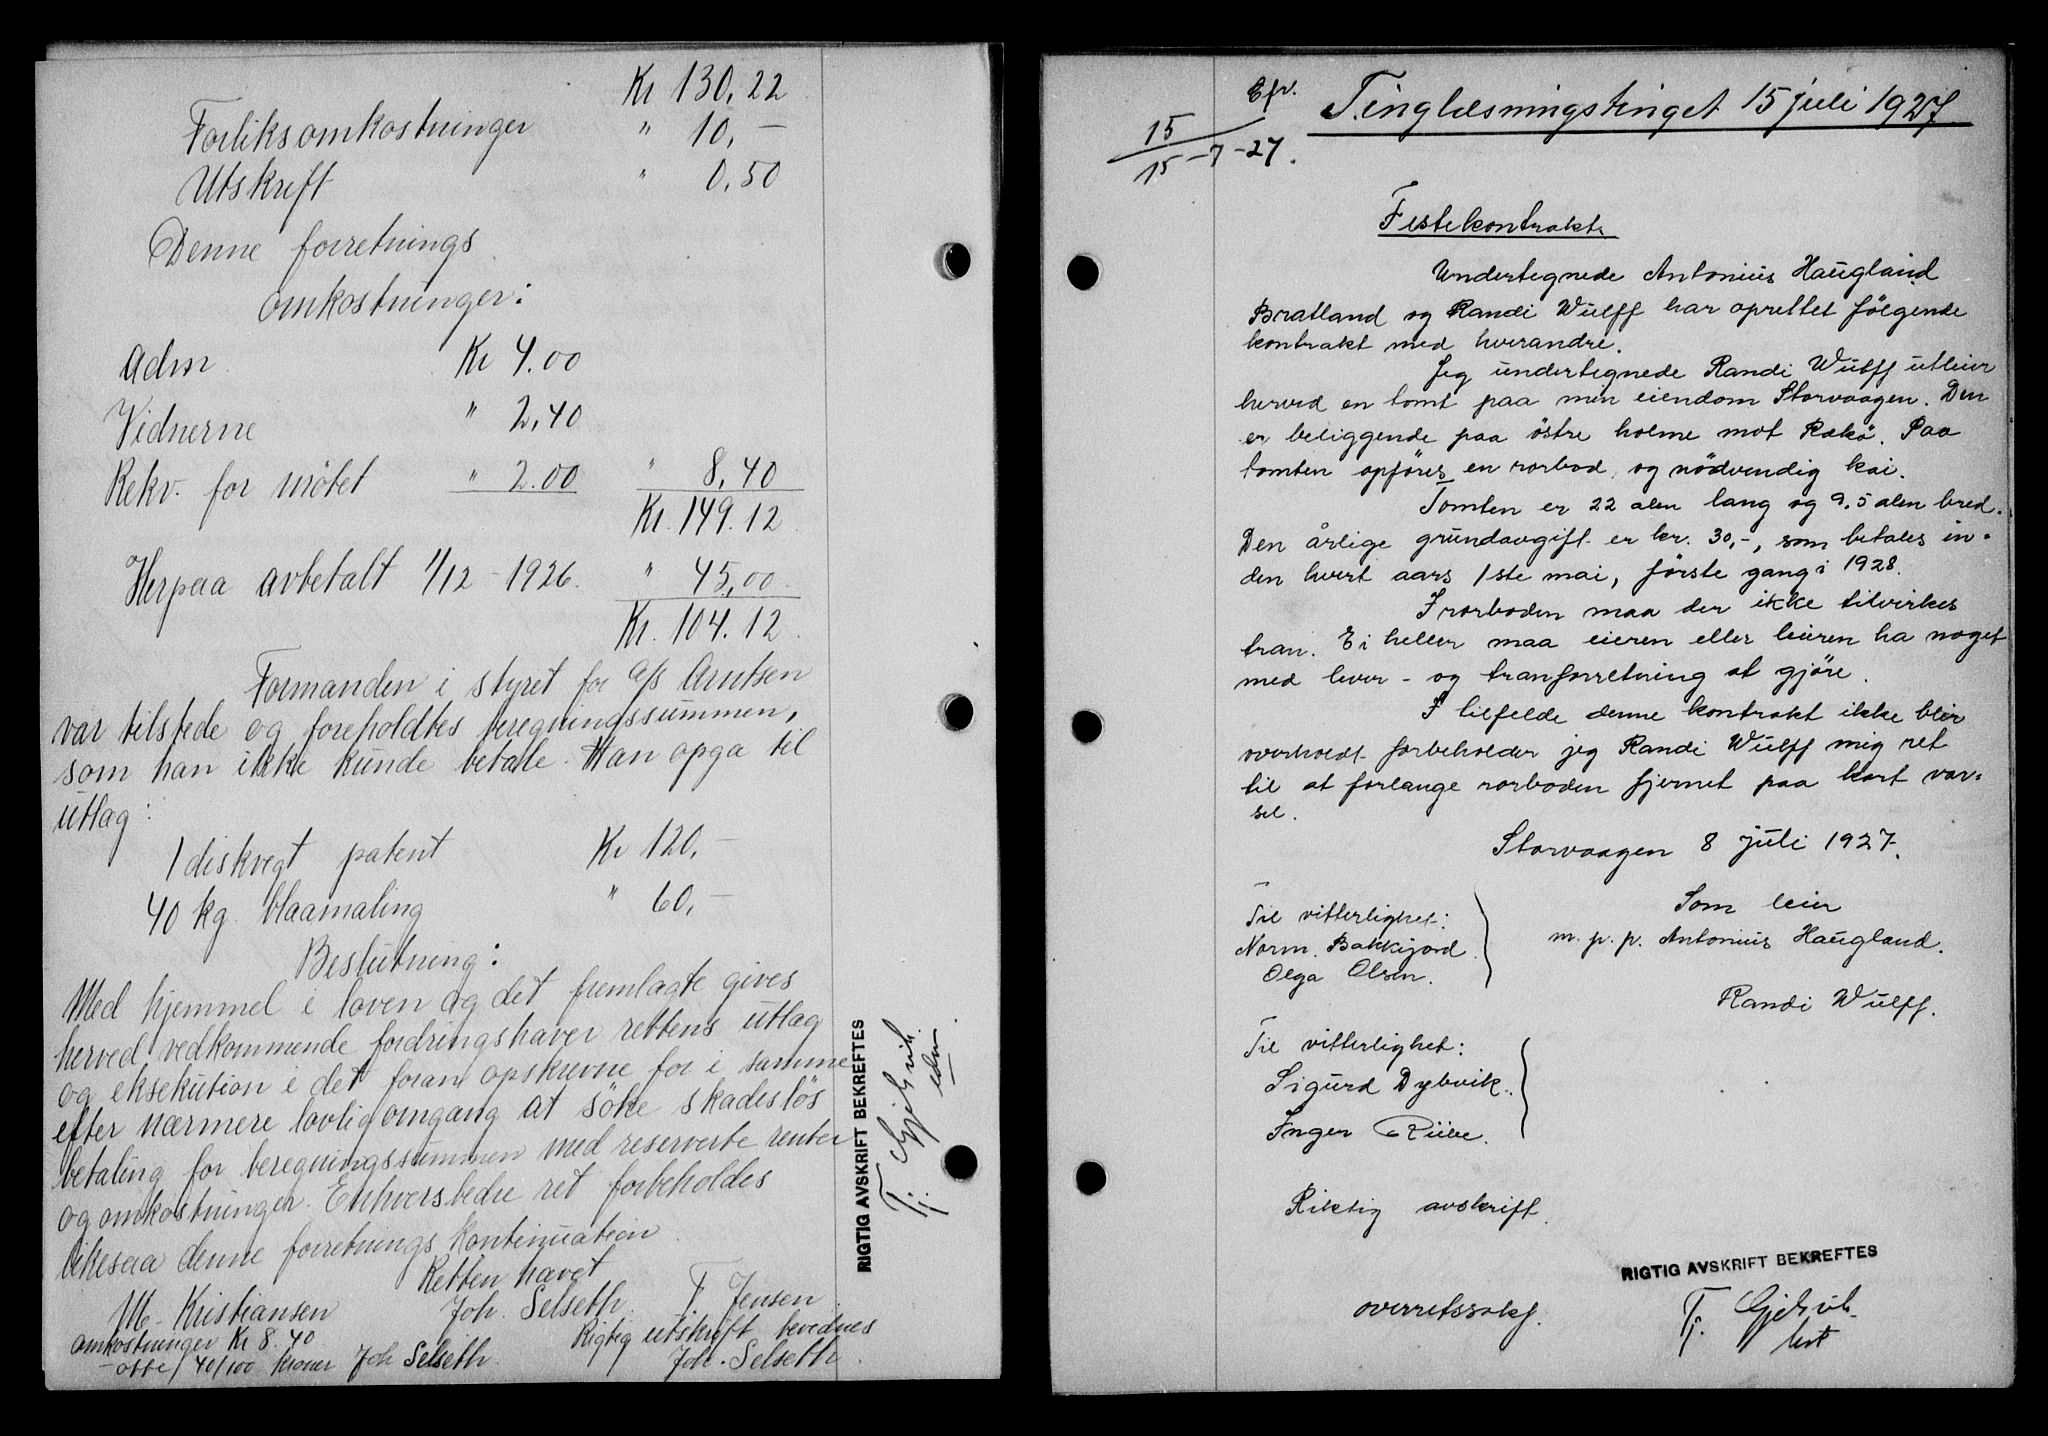 Kr 130,22
Forliksomkostninger " 10,-
Utskrift " 0,50
Denne forretnings
omkostninger:
Adm Kr 4.00
Vidnerne " 2,40
Rekv. for mötet " 2.00 " 8,40
Kr. 149.12
Herpaa avbetalt 1/12 - 1926. " 45,00
Kr. 104.12
Formanden i styret for a/s Arntsen
var tilstede og foreholdtes beregningssummen,
som han ikke kunde betale. Han opga til
utlag:
1 diskvegt patent Kr 120,-
40 kg. blaamaling " 60,-
Beslutning:
Med hjemmel i loven og det fremlagte gives
herved vedkommende fordringshaver rettens utlag
og eksekution i det foran opskrevne for i samme
efter nærmere lovlig omgang at söke skadeslös
betaling for beregningssummen med reserverte renter
og omkostninger. Enhvers bedre ret forbeholdes
likesaa denne forretnings kontinuation.
Retten hævet
M. Kristiansen Joh. Selseth. T. Jensen
omkostninger Kr 8.40 Rigtig utskrift bevidnes
-otte/40/100 kroner Joh Selseth. Joh. Selseth.
RIGTIG AVSKRIFT BEKREFTES
Tj. Gjelsvik.
Tinglæsningstinget 15 juli 1927.
15
15-7-27.
Festekontrakt.
Undertegnede Antonius Haugland
Bratland og Randi Wulff har oprettet fölgende
kontrakt med hverandre.
Jeg undertegnede Randi Wulff utleier
herved en tomt paa min eiendom Storvaagen. Den
er beliggende paa östre holme mot Rækö. Paa
tomten opföres en rorbod og nödvendig kai.
Tomten er 22 alen lang og 9.5 alen bred.
Den årlige grundavgift er kr. 30,-, som betales in-
den hvert aars 1ste mai, förste gang i 1928.
I rorboden maa der ikke tilvirkes
tran. Ei heller maa eieren eller leieren ha noget
med lever- og tranforretning at gjöre.
I tilfelde denne kontrakt ikke blir
overholdt forbeholder jeg Randi Wulff mig ret
til at forlange rorboden fjernet paa kort var-
sel.
Storvaagen 8 juli 1927.
Som leier
Til vitterlighet:
Norm. Bakkejord. m. p. p. Antonius Haugland.
Olga Olsen.
Randi Wulff.
Til vitterlighet:
Sigurd Dybvik.
Inger Riibe.
Riktig avskrift.
RIGTIG AVSKRIFT BEKREFTES
overretssakf. Tj. Gjelsvik